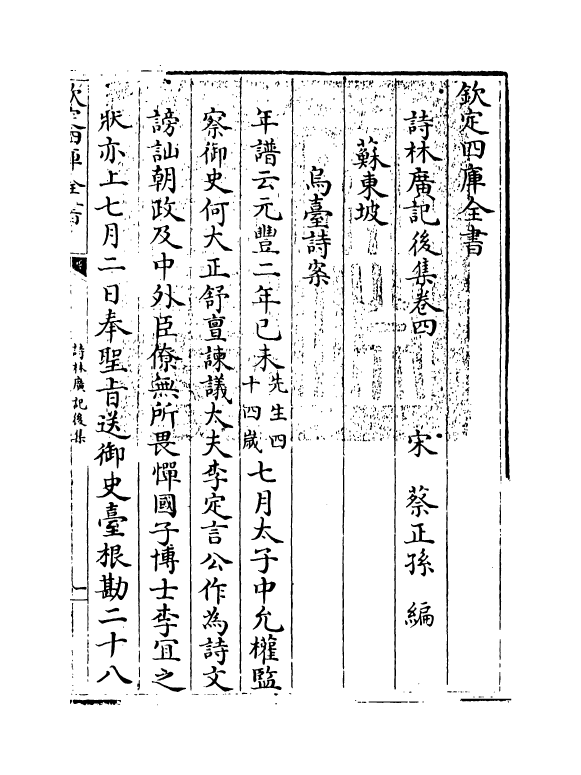 欽定四庫全書
詩林廣記後集卷四
宋 蔡正孫 編
蘇東坡
烏臺詩案
年譜云元豐二年已未先生四十四歲七月太子中允權監
察御史何大正舒亶諫議大夫李定言公作為詩文
謗訕朝政及中外臣僚無所畏憚國子博士李宜之
狀亦上七月二日奉聖旨送御史臺根勘二十八
欽定四庫全書
詩林廣記後集
一